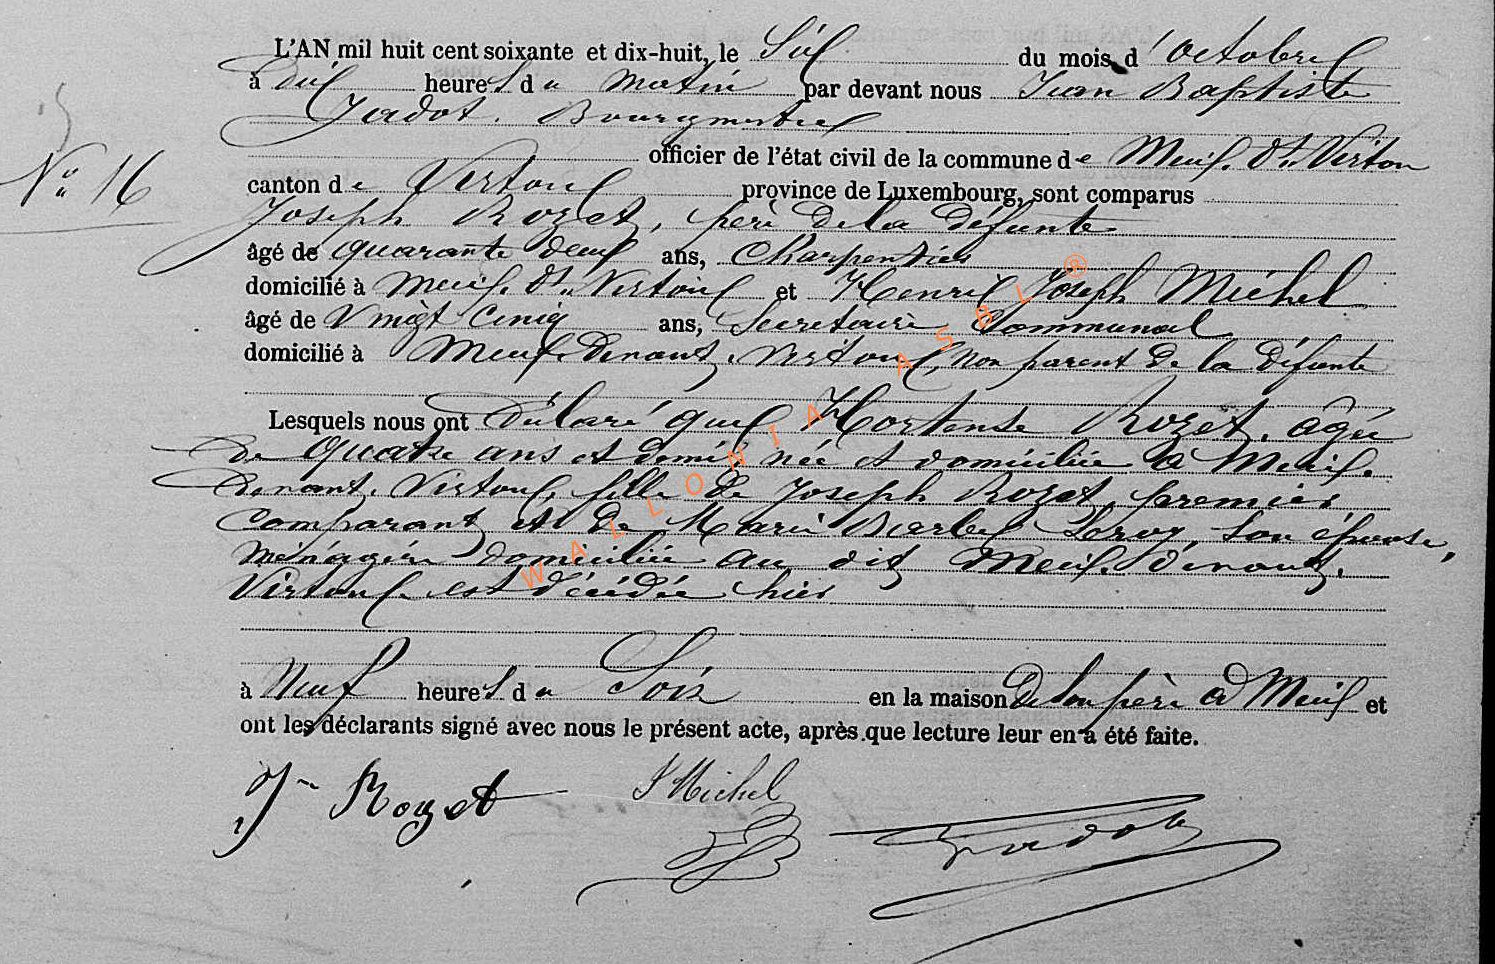 L'AN mil huit cent soixante et dix-huit, le Six du mois d'octobre
à dix heures du matin par devant nous Jean Baptiste
Jadot, Bourgmestre
officier de l'état civil de la commune de Meix dt Virton
N° 16
canton de Virton province de Luxembourg, sont comparus
Joseph Rozet, père de la défunte
âgé de quarante deux ans, Charpentier
domicilié à Meix dt Virton et Henri Joseph Michel
âgé de Vingt Cinq ans, Secretaire Communal
domicilié à Meix devant Virton, non parent de la défunte
Lesquels nous ont déclaré que Hortense Rozet, âgée
de quatre ans et demi née et domiciliée à Meix
devant Virton, fille de Joseph Rozet, premier
comparant et de Marie Barbe Leroy, son épouse,
ménagère domiciliée au dit Meix devant
Virton est décédée hier
à Neuf heures du Soir en la maison de son père à Meix et
ont les déclarants signé avec nous le présent acte, après que lecture leur en a été faite.
Jh Rozet Michel Jadot
WALLONIA ASBL ®